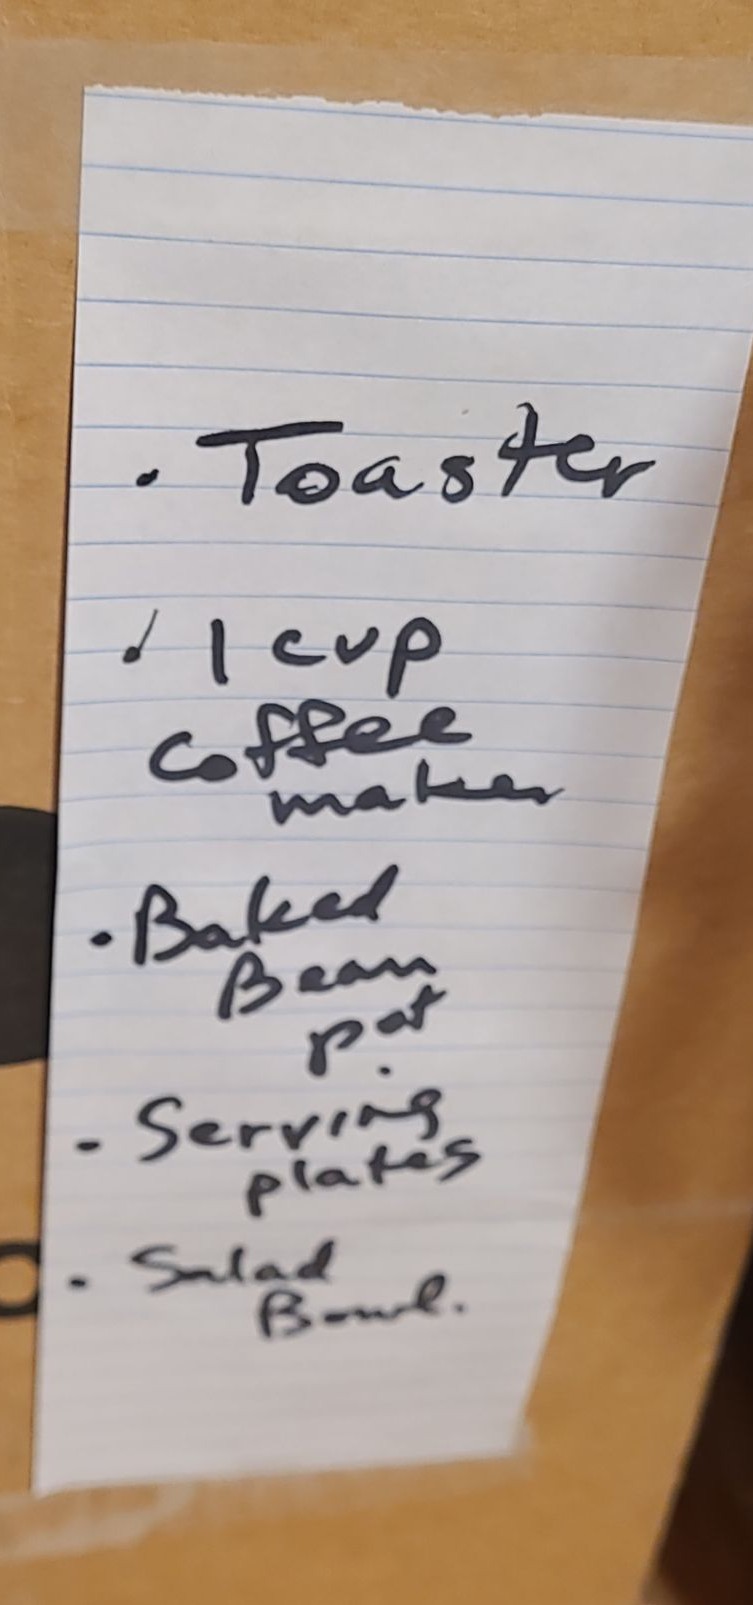 . Toaster
✓ 1 cup
coffee
maker
. Baked
Bean
pot.
- Serving
plates
. Salad
Bowl.